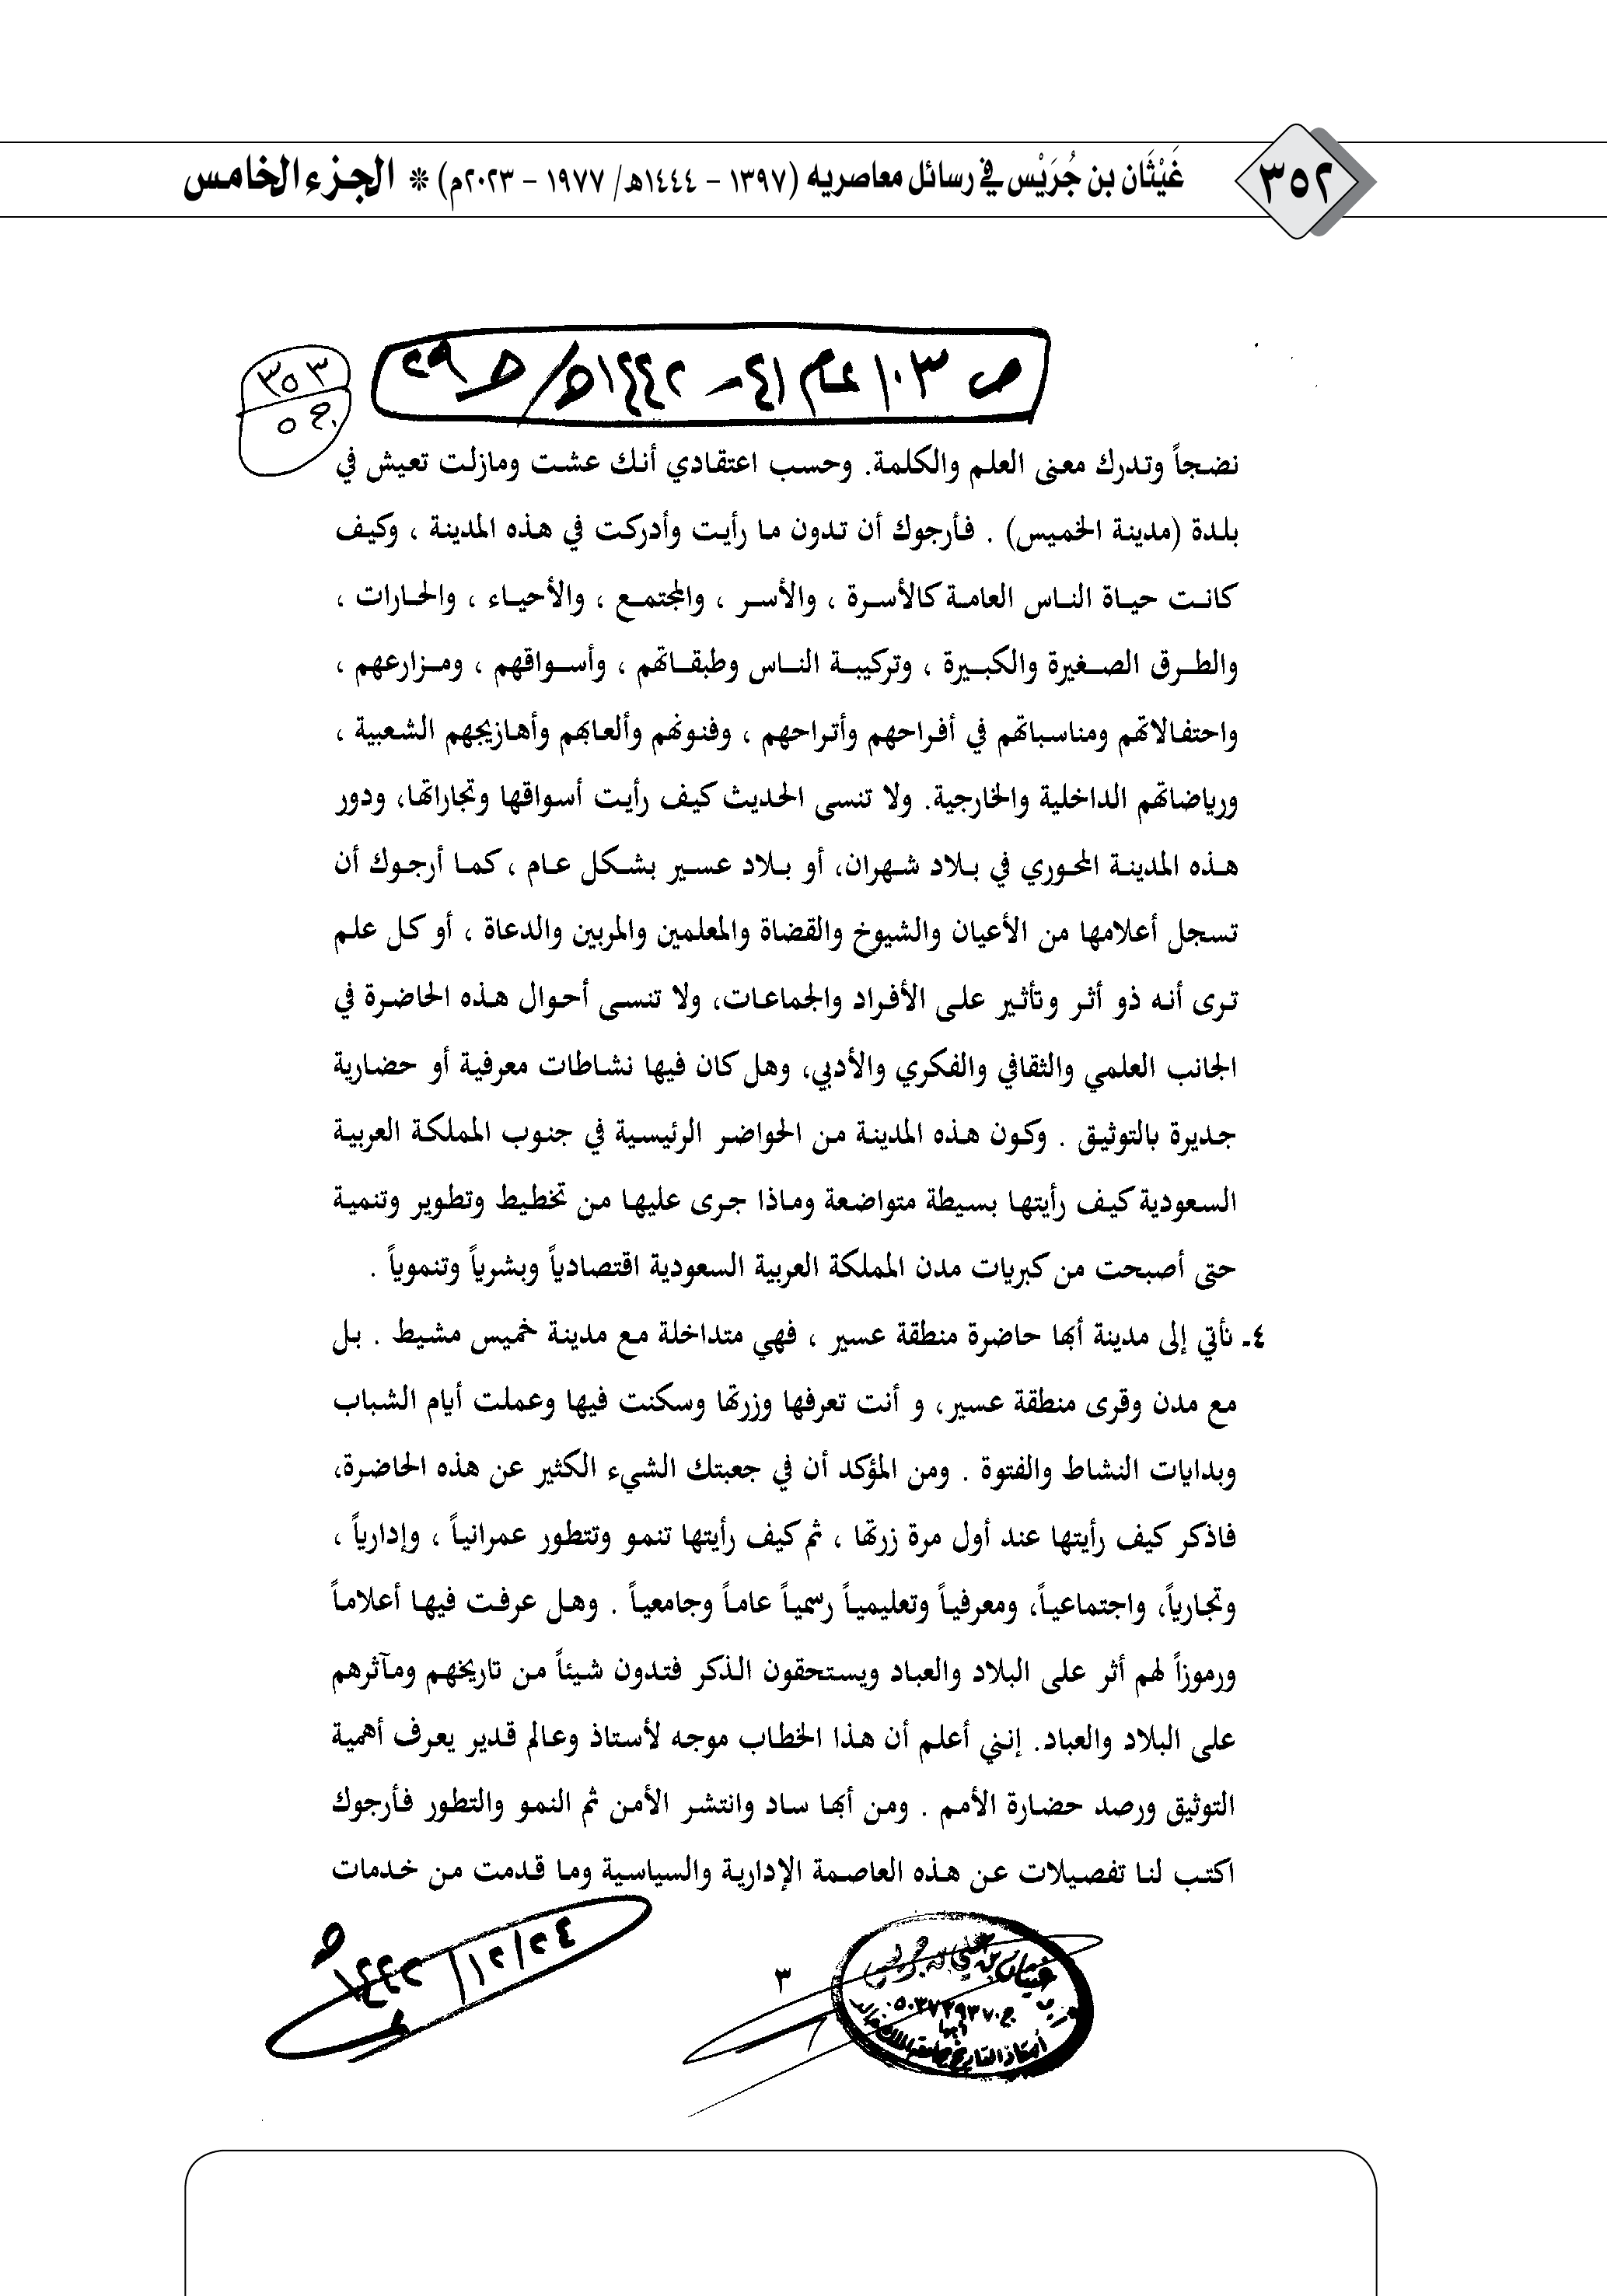 ٣٥٢
غَيْثَان بن جُرَيْس في رسائل معاصريه (١٣٩٧ – ١٤٤٤هـ/ ١٩٧٧ – ٢٠٢٣م) * الجزء الخامس
ص ١٠٣ عام ٤١ – ١٤٤٢هـ/ ح ٢٩
٣٥٣
ج ٥
نضجاً وتدرك معنى العلم والكلمة. وحسب اعتقادي أنك عشت ومازلت تعيش في
بلدة (مدينة الخميس) . فأرجوك أن تدون ما رأيت وأدركت في هذه المدينة ، وكيف
كانت حياة الناس العامة كالأسرة ، والأسر ، والمجتمع ، والأحياء ، والحارات ،
والطرق الصغيرة والكبيرة ، وتركيبة الناس وطبقاتهم ، وأسواقهم ، ومزارعهم ،
واحتفالاتهم ومناسباتهم في أفراحهم وأتراحهم ، وفنونهم وألعابهم وأهازيجهم الشعبية ،
ورياضاتهم الداخلية والخارجية. ولا تنسى الحديث كيف رأيت أسواقها وتجاراتها، ودور
هذه المدينة المحوري في بلاد شهران، أو بلاد عسير بشكل عام ، كما أرجوك أن
تسجل أعلامها من الأعيان والشيوخ والقضاة والمعلمين والمربين والدعاة ، أو كل علم
ترى أنه ذو أثر وتأثير على الأفراد والجماعات، ولا تنسى أحوال هذه الحاضرة في
الجانب العلمي والثقافي والفكري والأدبي، وهل كان فيها نشاطات معرفية أو حضارية
جديرة بالتوثيق . وكون هذه المدينة من الحواضر الرئيسية في جنوب المملكة العربية
السعودية كيف رأيتها بسيطة متواضعة وماذا جرى عليها من تخطيط وتطوير وتنمية
حتى أصبحت من كبريات مدن المملكة العربية السعودية اقتصادياً وبشرياً وتنموياً .
٤- نأتي إلى مدينة أبها حاضرة منطقة عسير ، فهي متداخلة مع مدينة خميس مشيط . بل
مع مدن وقرى منطقة عسير، و أنت تعرفها وزرتها وسكنت فيها وعملت أيام الشباب
وبدايات النشاط والفتوة . ومن المؤكد أن في جعبتك الشيء الكثير عن هذه الحاضرة،
فاذكر كيف رأيتها عند أول مرة زرتها ، ثم كيف رأيتها تنمو وتتطور عمرانياً ، وإدارياً ،
وتجارياً، واجتماعياً، ومعرفياً وتعليمياً رسمياً عاماً وجامعياً . وهل عرفت فيها أعلاماً
ورموزاً لهم أثر على البلاد والعباد ويستحقون الذكر فتدون شيئاً من تاريخهم ومآثرهم
على البلاد والعباد. إنني أعلم أن هذا الخطاب موجه لأستاذ وعالم قدير يعرف أهمية
التوثيق ورصد حضارة الأمم . ومن أبها ساد وانتشر الأمن ثم النمو والتطور فأرجوك
اكتب لنا تفصيلات عن هذه العاصمة الإدارية والسياسية وما قدمت من خدمات
غيثان بن علي بن جريس
أستاذ التاريخ جامعة الملك خالد
أبها
٣
٢٤/١٢/١٤٤٢هـ